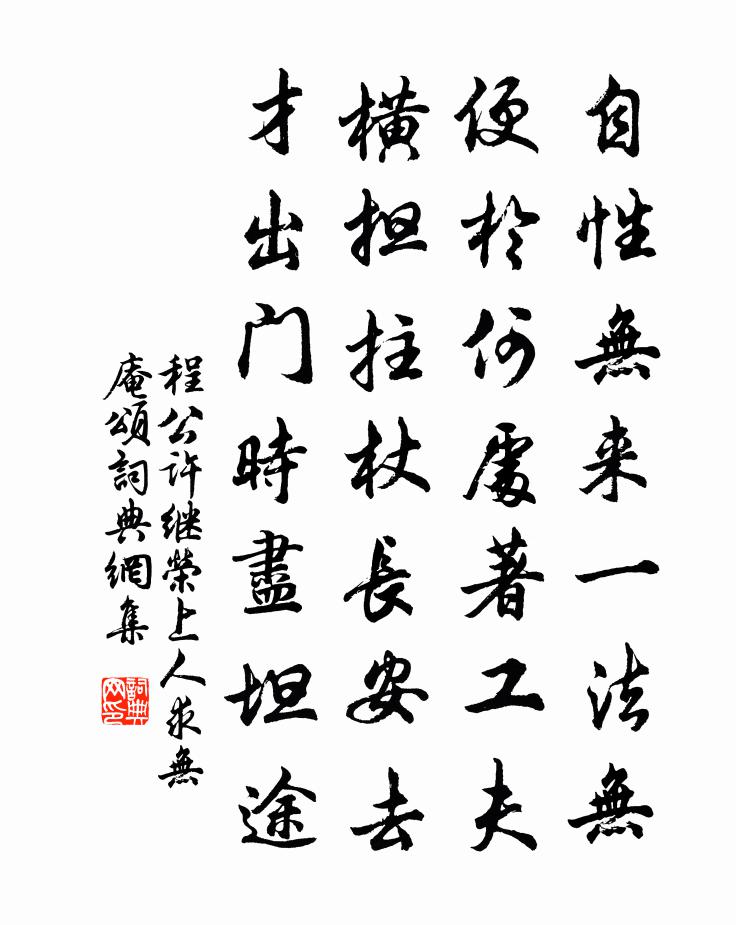 自性無来一法無
便於何處著工夫
横担拄杖長安去
才出门時盡坦途
程公许继榮上人求無
庵頌詞典網集
詞典网印